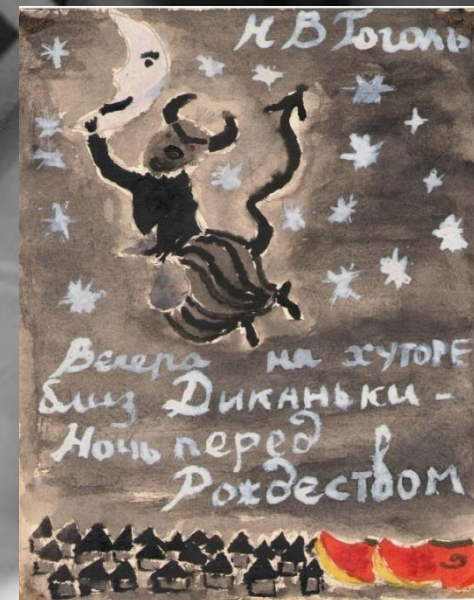 Н В Гоголь
Вечера на хуторе
близ Диканьки -
Ночь перед
Рождеством